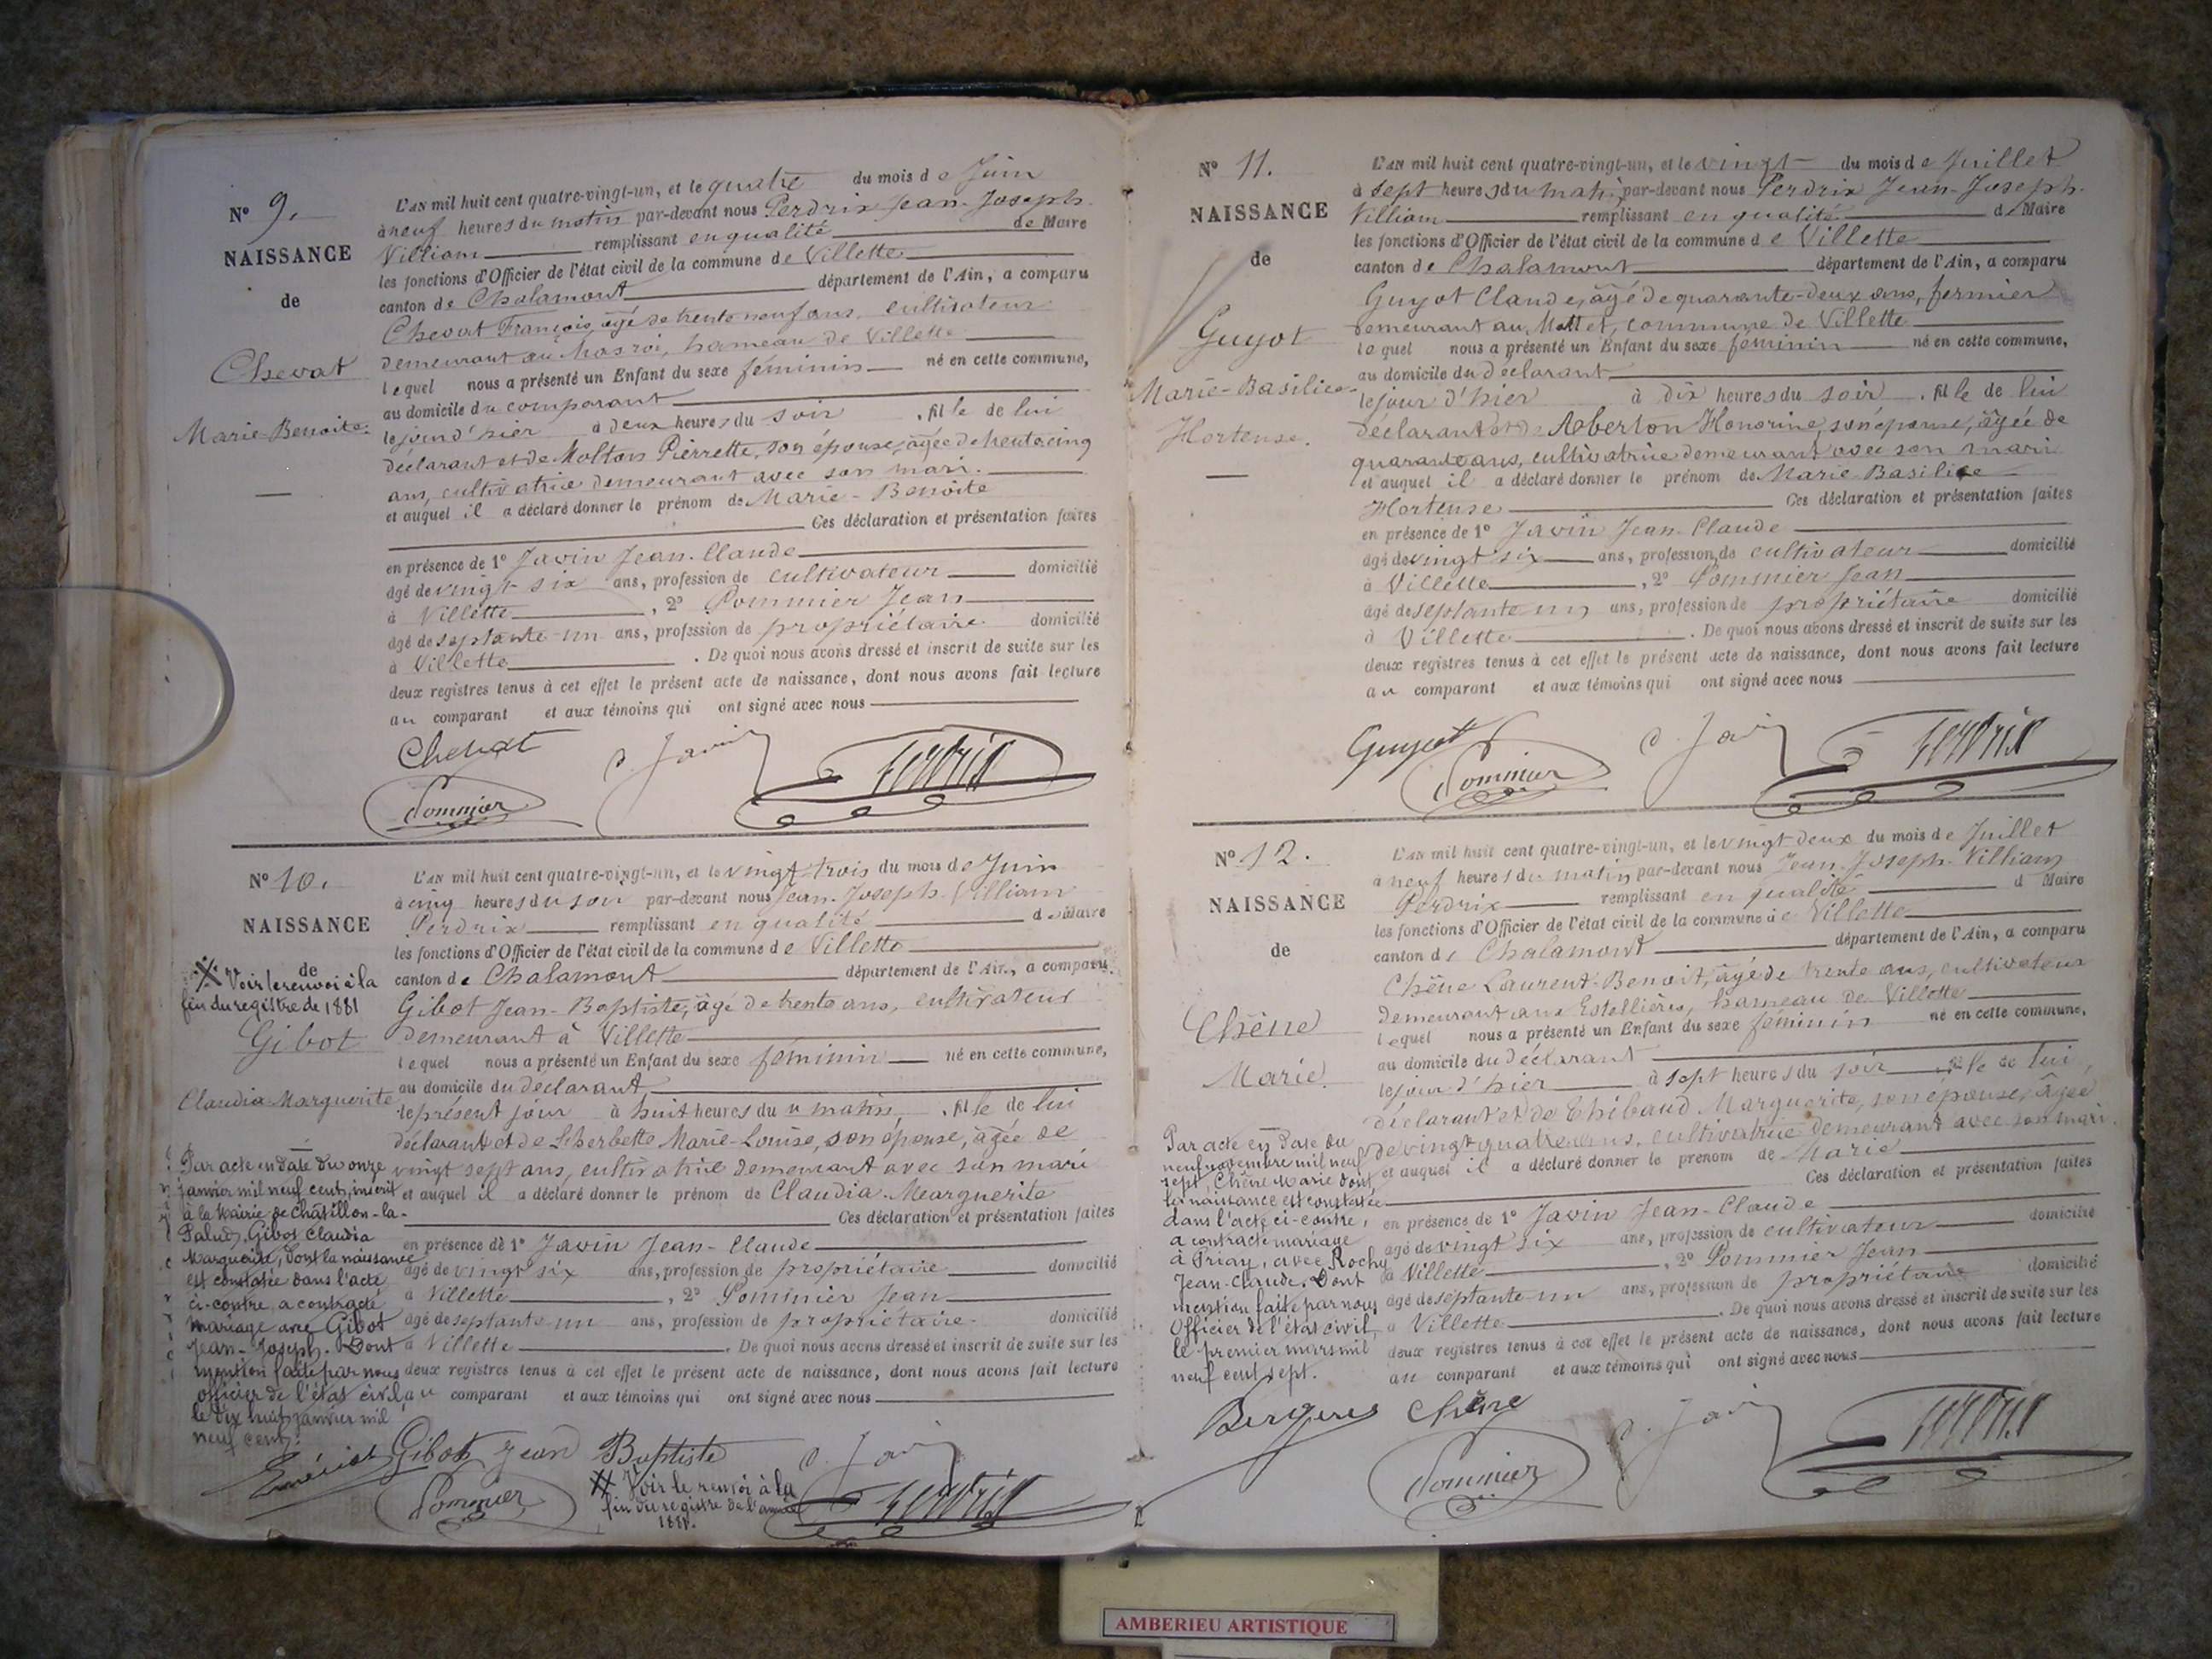 N° 9.
NAISSANCE
de
Chevat
Marie-Benoite.
L'AN mil huit cent quatre-vingt-un, et le quatre du mois de Juin
à neuf heures du matin par-devant nous Perdrix Jean-Joseph
Villiam remplissant en qualité de Maire
les fonctions d'Officier de l'état civil de la commune de Villette
canton de Chalamont département de l'Ain, a comparu
Chevat François, âgé de trente neuf ans, cultivateur
demeurant au hameau de Villette
lequel nous a présenté un Enfant du sexe féminin né en cette commune,
au domicile du comparant
le jour d'hier à deux heures du soir, fille de lui
déclarant et de Molton Pierrette, son épouse, âgée de trente cinq
ans, cultivatrice demeurant avec son mari.
et auquel il a déclaré donner le prénom de Marie-Benoite
Ces déclaration et présentation faites
en présence de 1° Javin Jean-Claude
âgé de vingt six ans, profession de cultivateur domicilié
à Villette, 2° Pommier Jean
âgé de septante-un ans, profession de propriétaire domicilié
à Villette. De quoi nous avons dressé et inscrit de suite sur les
deux registres tenus à cet effet le présent acte de naissance, dont nous avons fait lecture
au comparant et aux témoins qui ont signé avec nous
Chevat C. Javin Perdrix
Pommier
N° 10.
NAISSANCE
de
Voir le renvoi à la
fin du registre de 1881
Gibot
Claudia-Marguerite
L'AN mil huit cent quatre-vingt-un, et le vingt-trois du mois de Juin
à cinq heures du soir par-devant nous Jean-Joseph-Villiam
Perdrix remplissant en qualité de Maire
les fonctions d'Officier de l'état civil de la commune de Villette
canton de Chalamont département de l'Ain, a comparu
Gibot Jean-Baptiste, âgé de trente ans, cultivateur
demeurant à Villette
lequel nous a présenté un Enfant du sexe féminin né en cette commune,
au domicile du déclarant
le présent jour à huit heures du matin, fille de lui
déclarant et de Lherbette Marie-Louise, son épouse, âgée de
vingt sept ans, cultivatrice demeurant avec son mari
et auquel il a déclaré donner le prénom de Claudia-Marguerite
Ces déclaration et présentation faites
en présence de 1° Javin Jean-Claude
âgé de vingt six ans, profession de propriétaire domicilié
à Villette, 2° Pommier Jean
âgé de septante-un ans, profession de propriétaire domicilié
à Villette. De quoi nous avons dressé et inscrit de suite sur les
deux registres tenus à cet effet le présent acte de naissance, dont nous avons fait lecture
au comparant et aux témoins qui ont signé avec nous
Par acte en date du onze
janvier mil neuf cent, inscrit
à la Mairie de Châtillon-la-
Palud, Gibot Claudia
Marguerite, dont la naissance
est constatée dans l'acte
ci-contre, a contracté
mariage avec Gibot
Jean-Joseph. Dont
mention faite par nous
officier de l'état civil
le dix huit janvier mil
neuf cent.
Gibot Jean Baptiste C. Javin
Pommier Perdrix
Voir le renvoi à la
fin du registre de l'année
1881.
N° 11.
NAISSANCE
de
Guyot
Marie-Basilice
Hortense.
L'AN mil huit cent quatre-vingt-un, et le vingt du mois de Juillet
à sept heures du matin par-devant nous Perdrix Jean-Joseph
Villiam remplissant en qualité de Maire
les fonctions d'Officier de l'état civil de la commune de Villette
canton de Chalamont département de l'Ain, a comparu
Guyot Claude, âgé de quarante-deux ans, fermier
demeurant au Mollet, commune de Villette
lequel nous a présenté un Enfant du sexe féminin né en cette commune,
au domicile du déclarant
le jour d'hier à dix heures du soir, fille de lui
déclarant et de Aberton Honorine, son épouse, âgée de
quarante ans, cultivatrice demeurant avec son mari
et auquel il a déclaré donner le prénom de Marie Basilice
Hortense Ces déclaration et présentation faites
en présence de 1° Javin Jean-Claude
âgé de vingt six ans, profession de cultivateur domicilié
à Villette, 2° Pommier Jean
âgé de septante un ans, profession de propriétaire domicilié
à Villette. De quoi nous avons dressé et inscrit de suite sur les
deux registres tenus à cet effet le présent acte de naissance, dont nous avons fait lecture
au comparant et aux témoins qui ont signé avec nous
Guyot C. Javin Perdrix
Pommier
N° 12.
NAISSANCE
de
Chêne
Marie.
L'AN mil huit cent quatre-vingt-un, et le vingt deux du mois de Juillet
à neuf heures du matin par-devant nous Jean-Joseph-Villiam
Perdrix remplissant en qualité d Maire
les fonctions d'Officier de l'état civil de la commune de Villette
canton de Chalamont département de l'Ain, a comparu
Chêne Laurent-Benoit, âgé de trente ans, cultivateur
demeurant aux Estellières, hameau de Villette
lequel nous a présenté un Enfant du sexe féminin né en cette commune,
au domicile du déclarant
le jour d'hier à sept heures du soir fille de lui,
déclarant et de Thibaud Marguerite, son épouse, âgée
de vingt-quatre ans, cultivatrice demeurant avec son mari.
et auquel il a déclaré donner le prénom de Marie
Ces déclaration et présentation faites
en présence de 1° Javin Jean-Claude
âgé de vingt six ans, profession de cultivateur domicilié
à Villette, 2° Pommier Jean
âgé de septante-un ans, profession de propriétaire domicilié
à Villette. De quoi nous avons dressé et inscrit de suite sur les
deux registres tenus à cet effet le présent acte de naissance, dont nous avons fait lecture
au comparant et aux témoins qui ont signé avec nous
Par acte en date du
neuf novembre mil neuf
sept, Chêne Marie dont
la naissance est constatée
dans l'acte ci-contre,
a contracté mariage
à Priay, avec Rochy
Jean-Claude. Dont
mention faite par nous
Officier de l'état civil
le premier mars mil
neuf cent sept.
Bergeres Chêne C. Javin Perdrix
Pommier
AMBERIEU ARTISTIQUE